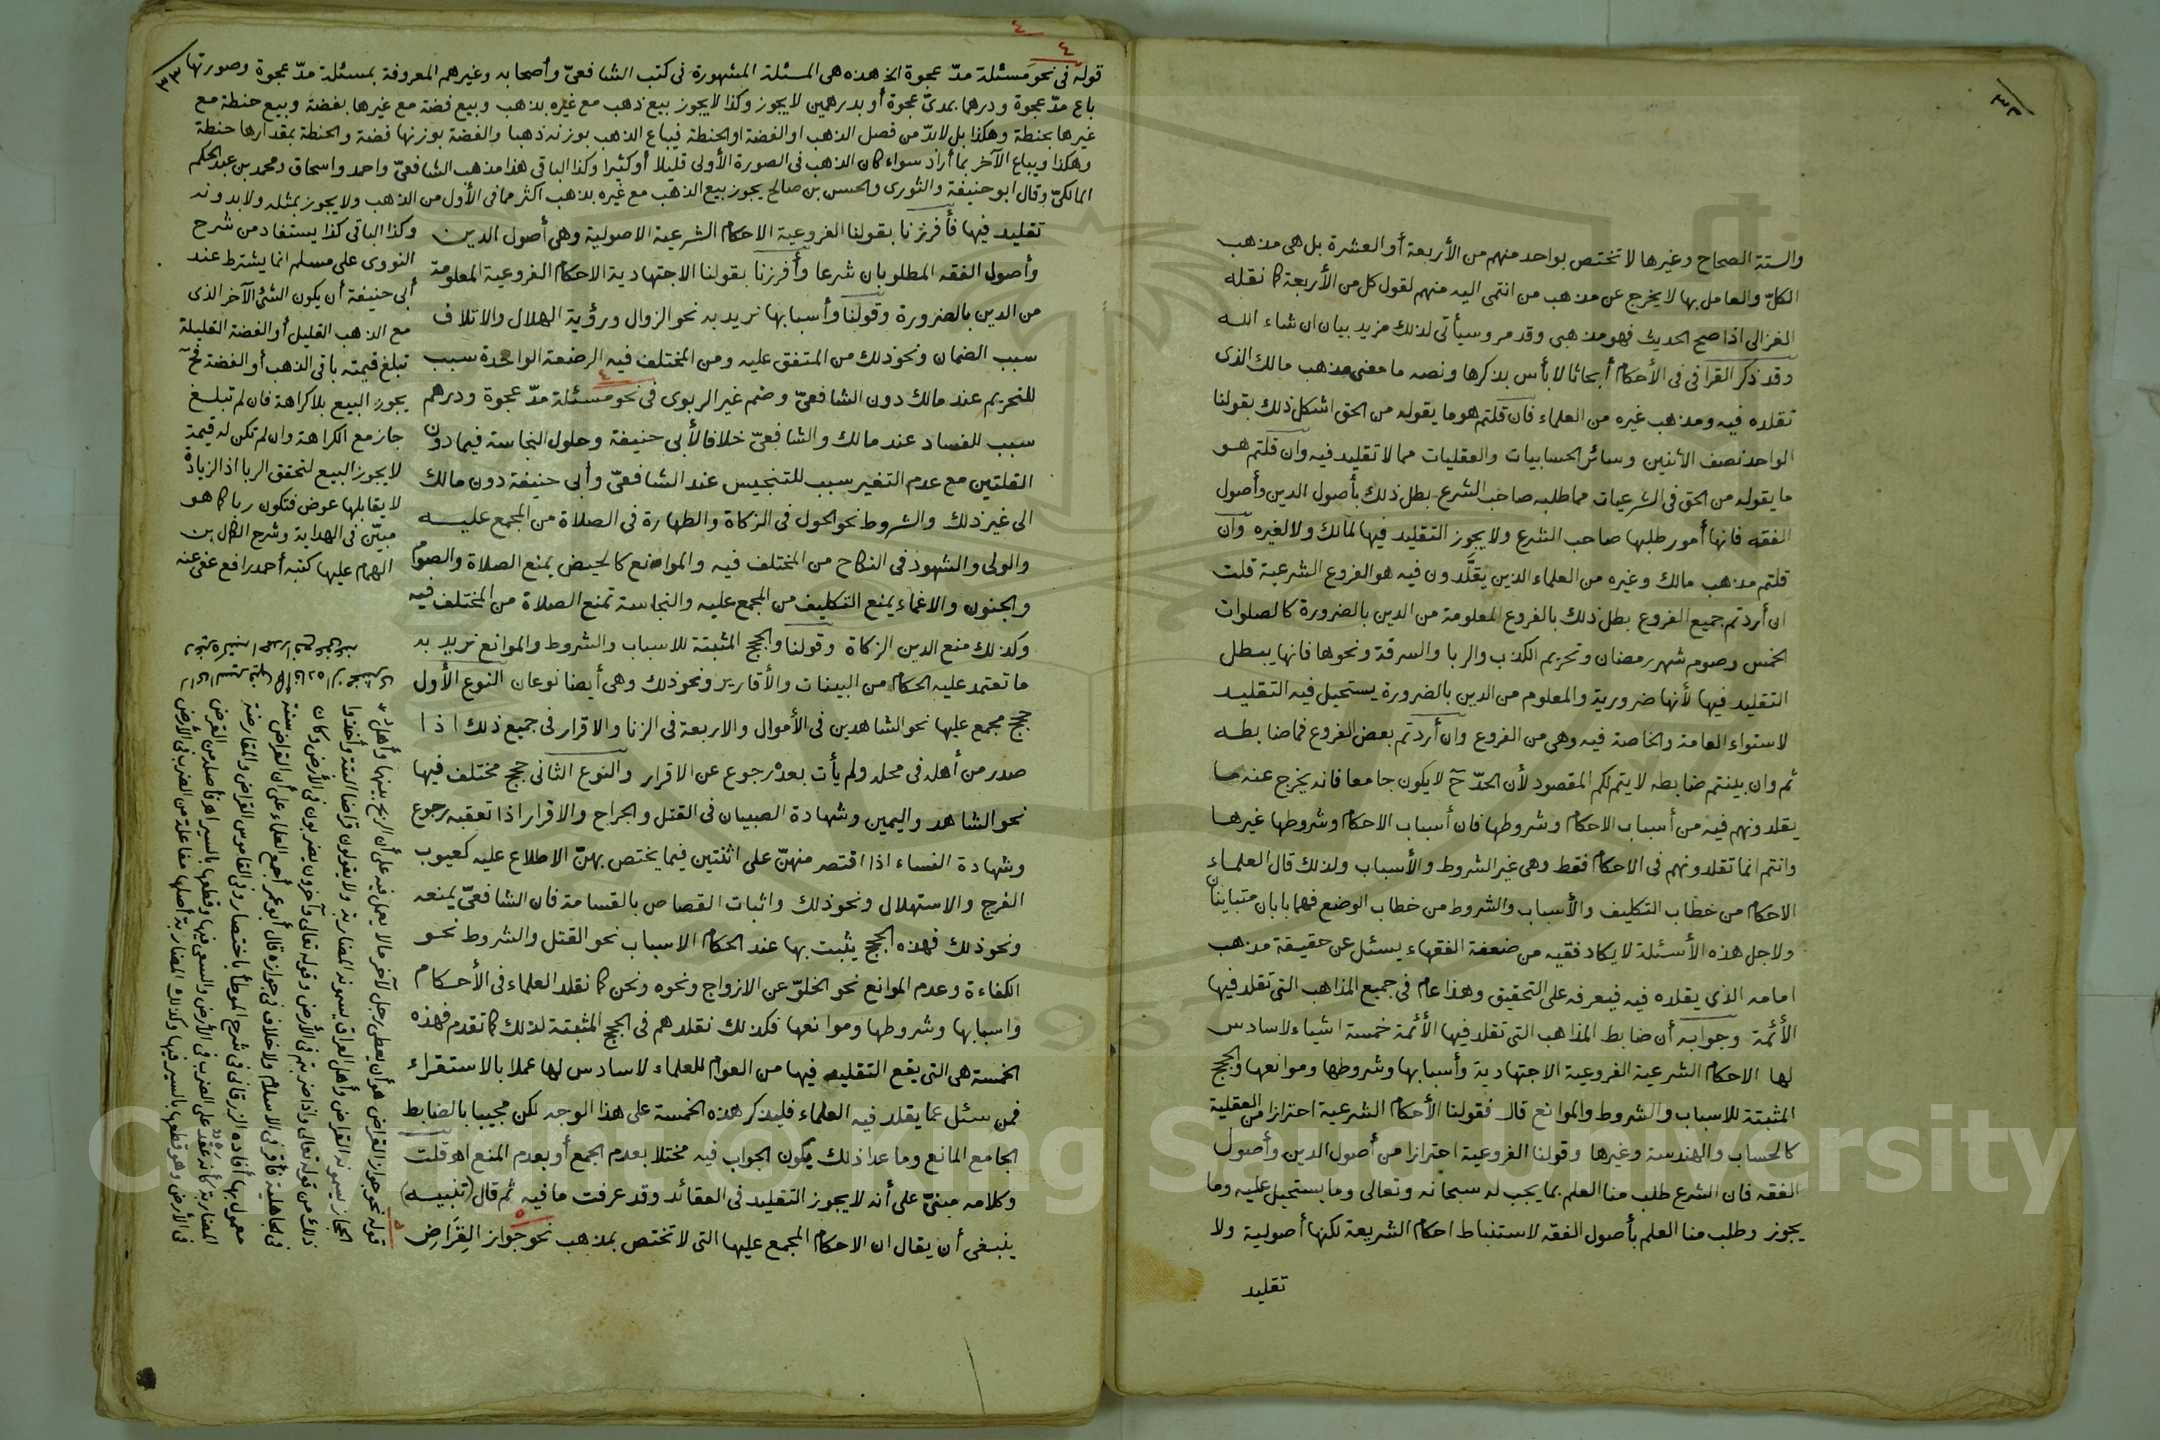 ٣٢
والستة الصحاح وغيرها لا تختص بواحد منهم من الأربعة أو العشرة بل هى مذهب
الكلّ والعامل بها لا يخرج عن مذهب من انتمى اليه منهم لقول كل من الأربعة كما نقله
الغزالى اذا صح الحديث فهو مذهبى وقد مر وسيأتى لذلك مزيد بيان ان شاء الله
وقد ذكر القرافى فى الأحكام أبحاثا لا بأس بذكرها ونصه ما معنى مذهب مالك الذى
تقلده فيه ومذهب غيره من العلماء فان قلتم هو ما يقوله من الحق اشكل ذلك بقولنا
الواحد نصف الاثنين وسائر الحسابيات والعقليات مما لا تقليد فيه وان قلتم هو
ما يقوله من الحق فى الشرعيات مما طلبه صاحب الشرع بطل ذلك بأصول الدين وأصول
الفقه فانها أمور طلبها صاحب الشرع ولا يجوز التقليد فيها لمالك ولا لغيره وان
قلتم مذهب مالك وغيره من العلماء الذين يقلَّدون فيه هو الفروع الشرعية قلت
ان أردتم جميع الفروع بطل ذلك بالفروع المعلومة من الدين بالضرورة كالصلوات
الخمس وصوم شهر رمضان وتحريم الكذب والربا والسرقة ونحوها فانها يبطل
التقليد فيها لأنها ضرورية والمعلوم من الدين بالضرورة يستحيل فيه التقليد
لاستواء العامة والخاصة فيه وهى من الفروع وان أردتم بعض الفروع فما ضابطه
ثم وان بينتم ضابطه لا يتم لكم المقصود لأن الحدّ حّ لا يكون جامعا فانه يخرج عنه ما
يقلدونهم فيه من أسباب الاحكام وشروطها فان أسباب الاحكام وشروطها غيرها
وانتم انما تقلدونهم فى الاحكام فقط وهى غير الشروط والأسباب ولذلك قال العلماء
الاحكام من خطاب التكليف والأسباب والشروط من خطاب الوضع فهما بابان متباينان
ولاجل هذه الأسئلة لا يكاد فقيه من ضعفة الفقهاء يسئل عن حقيقة مذهب
امامه الذي يقلده فيه فيعرفه على التحقيق وهذا عام فى جميع المذاهب التى تقلد فيها
الأئمة وجوابه أن ضابط المذاهب التى تقلد فيها الأئمة خمسة اشياء لا سادس
لها الاحكام الشرعية الفروعية الاجتهادية وأسبابها وشروطها وموانعها والحجج
المثبتة للاسباب والشروط والموانع قال فقولنا الأحكام الشرعية احترازا من العقلية
كالحساب والهندسة وغيرها وقولنا الفروعية احترازا من أصول الدين وأصول
الفقه فان الشرع طلب منا العلم بما يجب له سبحانه وتعالى وما يستحيل عليه وما
يجوز وطلب منا العلم بأصول الفقه لاستنباط احكام الشريعة لكنها أصولية ولا
تقليد
٣٣
٤
٤
قوله فى نحو مسئلة مدّ عجوة الخ هذه هى المسئلة المشهورة فى كتب الشافعىّ وأصحابه وغيرهم المعروفة بمسئلة مدّ عجوة وصورتها
باع مدّ عجوة ودرهما بمدىّ عجوة أو بدرهمين لا يجوز وكذا لا يجوز بيع ذهب مع غيره بذهب وبيع فضة مع غيرها بفضة وبيع حنطة مع
غيرها بحنطة وهكذا بل لابدّ من فصل الذهب او الفضة او الحنطة فيباع الذهب بوزنه ذهبا والفضة بوزنها فضة والحنطة بمقدارها حنطة
وهكذا ويباع الآخر بما أراد سواء كان الذهب فى الصورة الأولى قليلا أو كثيرا وكذا الباقى هذا مذهب الشافعىّ واحمد واسحاق ومحمد بن عبد الحكم
المالكىّ وقال ابو حنيفة والثورى والحسن بن صالح يجوز بيع الذهب مع غيره بذهب اكثر مما فى الأول من الذهب ولا يجوز بمثله ولا بدونه
وكذا الباقى كذا يستفاد من شرح
النووى على مسلم انما يشترط عند
أبى حنيفة أن يكون الشئ الآخر الذى
مع الذهب القليل أو الفضة القليلة
تبلغ قيمته باقى الذهب أو الفضة فحّ
يجوز البيع بلا كراهة فان لم تبلغ
جاز مع الكراهة وان لم تكن له قيمة
لا يجوز البيع لتحقق الربا اذ الزيادة
لا يقابلها عوض فتكون ربا كما هو
مبيّن فى الهداية وشرح الكمال بن
الهمام عليها كتبه أحمد رافع عفى عنه
تقليد فيها فأفرزنا بقولنا الفروعية الاحكام الشرعية الاصولية وهى أصول الدين
وأصول الفقه المطلوبان شرعا وأفرزنا بقولنا الاجتهادية الاحكام الفروعية المعلومة
من الدين بالضرورة وقولنا وأسبابها نريد به نحو الزوال ورؤية الهلال والاتلاف
سبب الضمان ونحو ذلك من المتفق عليه ومن المختلف فيه الرضعة الواحدة سبب
للتحريم عند مالك دون الشافعىّ وضم غير الربوى فى نحو مسئلة مدّ عجوة ودرهم
سبب للفساد عند مالك والشافعىّ خلافا لأبى حنيفة وحلول النجاسة فيما دون
القلتين مع عدم التغير سبب للتنجيس عند الشافعىّ وأبى حنيفة دون مالك
الى غير ذلك والشروط نحو الحول فى الزكاة والطهارة فى الصلاة من المجمع عليه
والولى والشهود فى النكاح من المختلف فيه والموانع كالحيض يمنع الصلاة والصوم
والجنون والاغماء يمنع التكليف من المجمع عليه والنجاسة تمنع الصلاة من المختلف فيه
وكذلك منع الدين الزكاة وقولنا والحجج المثبتة للاسباب والشروط والموانع نريد به
ما تعتمد عليه الحكام من البينات والأقارير ونحو ذلك وهى أيضا نوعان النوع الأول
حجج مجمع عليها نحو الشاهدين فى الأموال والاربعة فى الزنا والاقرار فى جميع ذلك اذا
صدر من أهله فى محله ولم يأت بعده رجوع عن الاقرار والنوع الثانى حجج مختلف فيها
نحو الشاهد واليمين وشهادة الصبيان فى القتل والجراح والاقرار اذا تعقبه رجوع
وشهادة النساء اذا اقتصر منهنّ على اثنتين فيما يختص بهنّ الاطلاع عليه كعيوب
الفرج والاستهلال ونحو ذلك واثبات القصاص بالقسامة فان الشافعىّ يمنعه
ونحو ذلك فهذه الحجج يثبت بها عند الحكام الاسباب نحو القتل والشروط نحو
الكفاءة وعدم الموانع نحو الخلوّ عن الازواج ونحوه ونحن كما نقلد العلماء فى الأحكام
واسبابها وشروطها وموانعها فكذلك نقلدهم فى الحجج المثبتة لذلك كما تقدم فهذه
الخمسة هى التى يقع التقليد فيها من العوام للعلماء لا سادس لها عملا بالاستقراء
فمن سئل عما يقلد فيه العلماء فليذكر هذه الخمسة على هذا الوجه لكن مجيبا بالضابط
الجامع المانع وما عدا ذلك يكون الجواب فيه مختلا بعدم الجمع أو بعدم المنع اهـ قلت
وكلامه مبنىّ على أنه لا يجوز التقليد فى العقائد وقد عرفت ما فيه ثم قال (تنبيه)
ينبغى أن يقال ان الاحكام المجمع عليها التى لا تختص بمذهب نحو جواز القِرَاض
٥
قوله نحو جواز القراض هو أن يعطى رجل لآخر مالا يعمل فيه على أن الربح بينهما وأهل
الحجاز يسمونه القراض وأهل العراق يسمونه المضاربة ولا يقولون قراضا البتة وأخذوا
ذلك من قوله تعالى واذا ضربتم فى الأرض وقوله تعالى وآخرون يضربون فى الأرض وكان
فى الجاهلية فأقر فى الاسلام ولا خلاف فى جوازه قال أبو عمر أجمع العلماء على أن القراض سنة
معمول بها أفاده الزرقانى فى شرح الموطأ باختصار وفى القاموس القراض والمقارضة
المضاربة كأنه عقد على الضرب فى الأرض والسعى فيها وقطعها بالسير اهـ وأصله من القرض
فى الأرض وهو قطعها بالسير فيها وكذلك المضاربة أصلها مفاعلة من الضرب فى الأرض